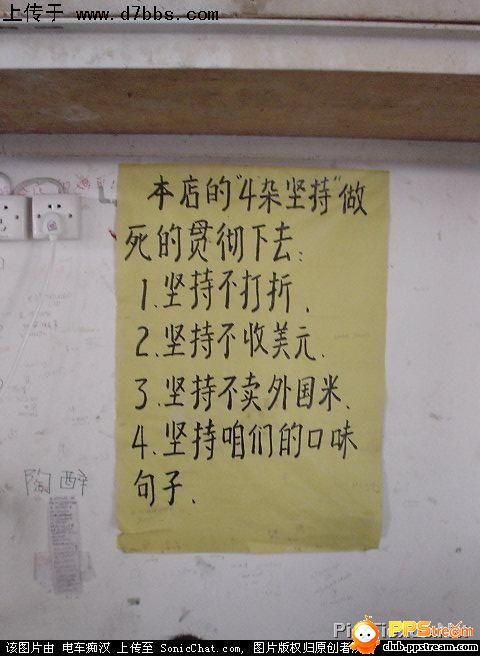 上传于 www.d7bbs.com
本店的"4杂坚持"做
死的贯彻下去:
1.坚持不打折.
2.坚持不收美元.
3.坚持不卖外国米.
4.坚持咱们的口味
句子.
陶醉
PPStream
club.ppstream.com
该图片由 电车痴汉 上传至 SonicChat.com, 图片版权归原创者